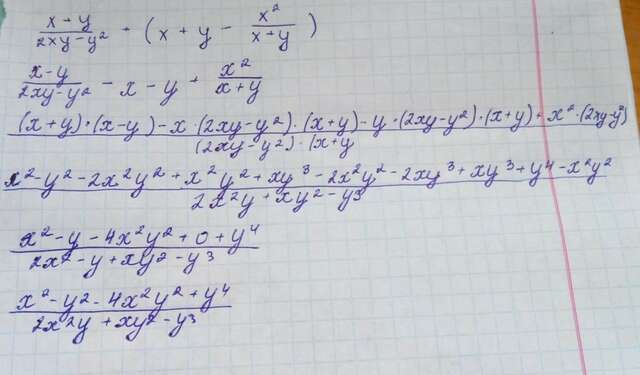 x+y/2xy-y² - (x+y - x²/x+y)
x-y/2xy-y² - x - y + x²/x+y
(x+y)·(x-y)-x·(2xy-y²)·(x+y)-y·(2xy-y²)·(x+y)+x²·(2xy-y²)/(2xy-y²)·(x+y
x²-y²-2x²y²+x²y²+xy³-2x²y²-2xy³+xy³+y⁴-x²y²/2x²y+xy²-y³
x²-y-4x²y²+0+y⁴/2x²-y+xy²-y³
x²-y²-4x²y²+y⁴/2x²y+xy²-y³